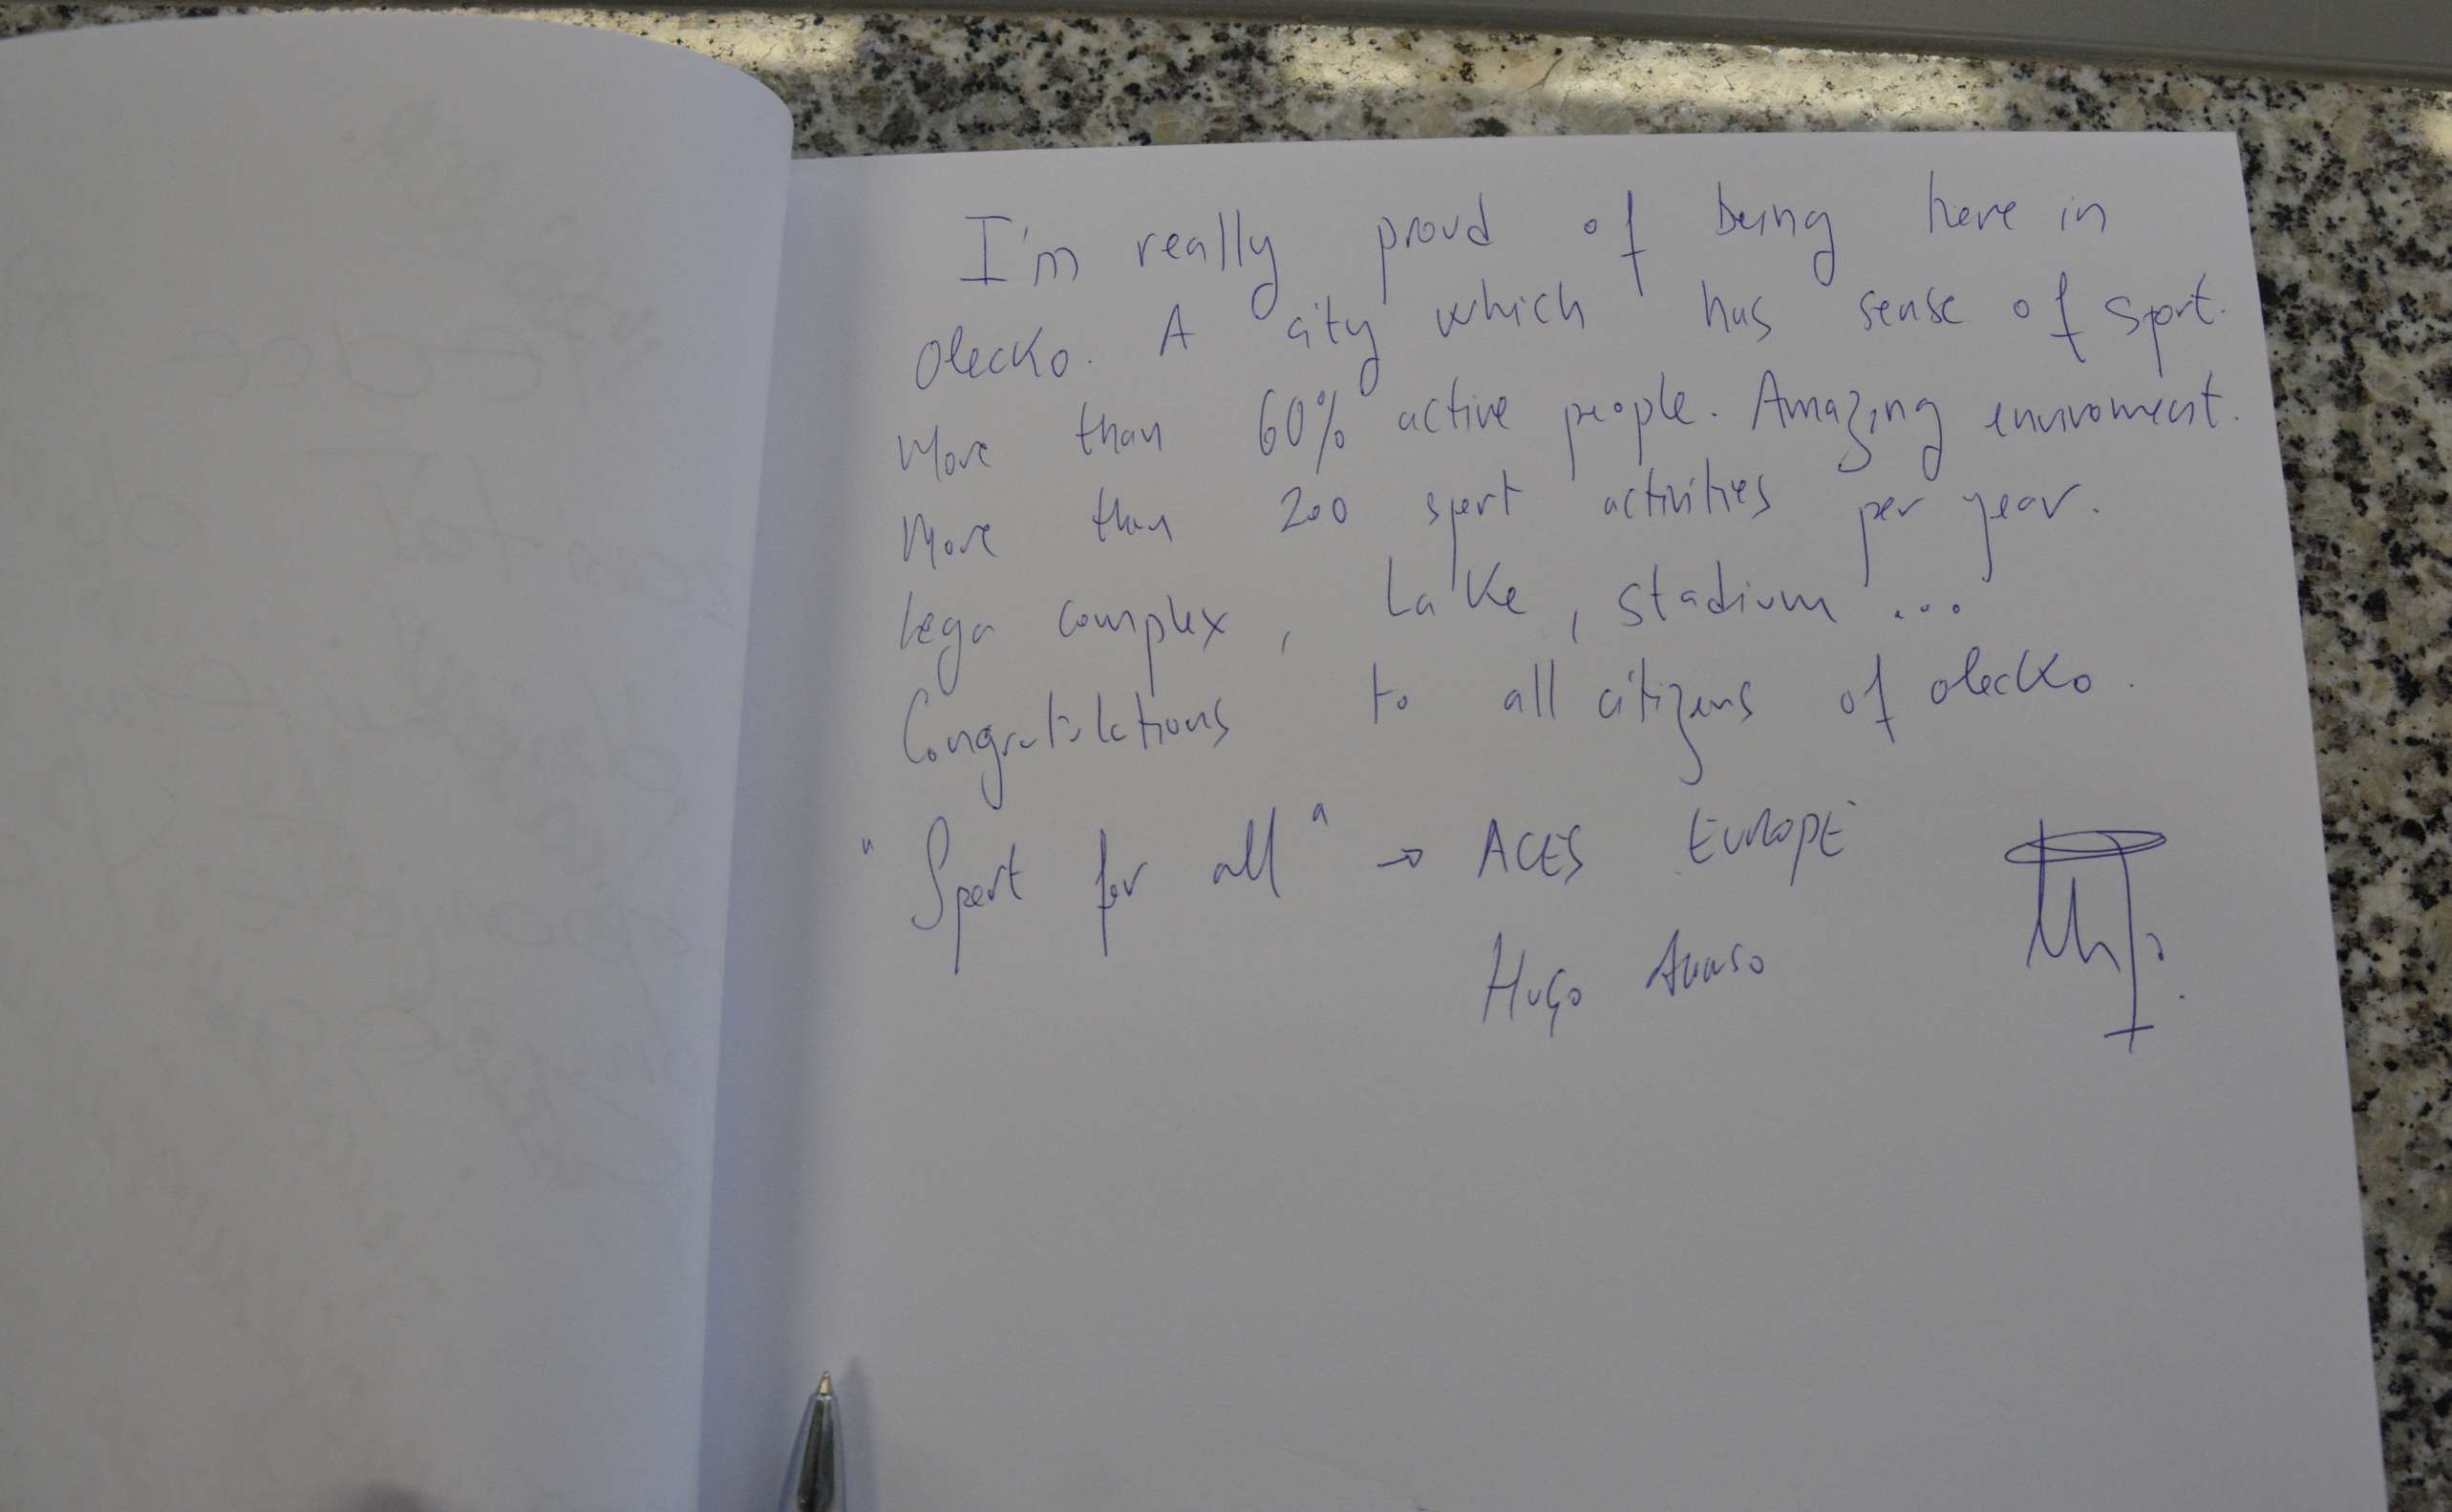 I'm really proud of being here in
Olecko. A city which has sense of sport.
More than 60% active people. Amazing enviroment.
More than 200 sport activities per year.
Lega complex, Lake, stadium ...
Congratulations to all citizens of olecko.
"Sport for all" → ACES EUROPE
Hugo Alonso